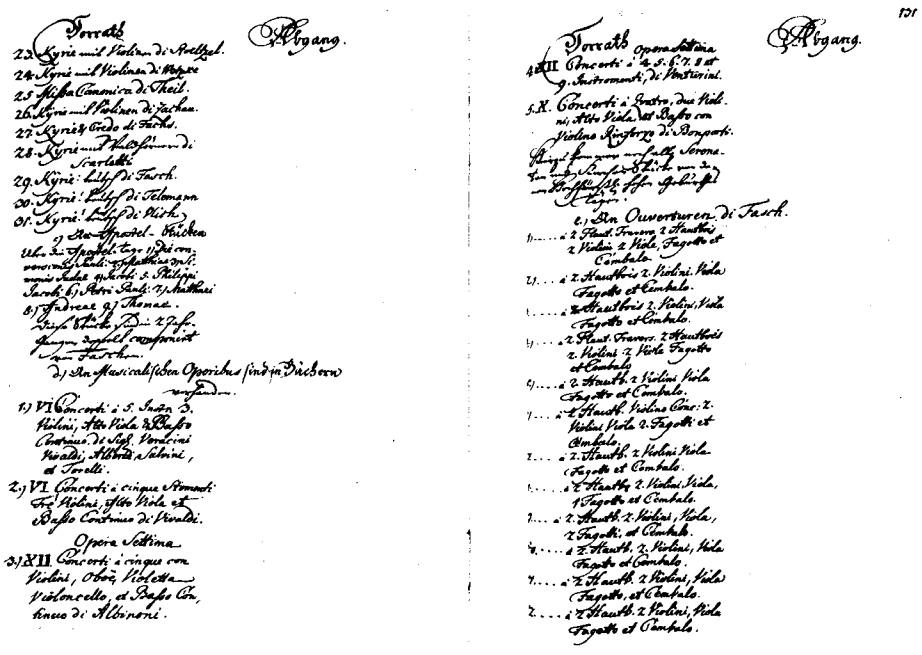 Vorrath
Abgang.
23. Kyrie mit Violinen di Stoeltzel.
24. Kyrie mit Violinen di
25 Missa Canonica di Theil.
26. Kyrie mit Violinen di Zachau.
27. Kyrie & Credo di Fuchs.
28. Kyrie mit Waldhörnern di
Scarlatti
29. Kyrie: deutsch di Fasch.
30. Kyrie: deutsch di Telemann
31. Kyrie! deutsch di
c) An Apostel-Stücken
Uber die Apostel-Tage 1) Die con-
versionis Pauli. 2) Matthiae 3) Si-
monis Judae 4) Jacobi 5. Philippi
Jacobi: 6.) Petri Pauli: 7.) Matthaei
8.) Andreae 9.) Thomae.
Diese Stücke sind in 2 Jahr-
gängen doppelt componiert
von Faschen.
d.) An Musicalischen Operibus sind in Büchern
vorhanden.
1.) VI Concerti à 5. Instr. 3.
Violini, Alto Viola & Basso
Continuo di Sigl. Veracini
Vivaldi, Albinoni, Salvini,
et Torelli.
2.) VI. Concerti à cinque Stromenti
Tre Violini, Alto Viola et
Basso Continuo di Vivaldi.
Opera Settima
3.) XII Concerti à cinque con
Violini, Oboè, Violetta
Violoncello, et Basso Con,
tinuo di Albinoni.
131
Vorrath
Abgang.
Opera Settima
4. XII Concerti à 4. 5. 6. 7. 8 et
9. Instromenti, di Venturini.
5. X. Concerti à Quatro, due Violi-
ni, Alto Viola et Basso con
Violino Rinforzo di Bonporti.
Hierzu kommen noch alle Serena-
ten und Stücke von den
hohen Geburths
tagen.
e.) An Ouverturen di Fasch.
1..... à 2 Flaut. Travers. 2 Hautbois
2 Violini 2 Viole, Fagotto et
Cembalo.
à 2 Hautbois 2. Violini. Viola
Fagotto et Cembalo.
à 2 Hautbois 2. Violini, Viola
Fagotto et Cembalo.
à 2 Flaut. Travers. 2 Hautbois
2. Violini 2 Viola Fagotto
et Cembalo
à 2 Hautb. 2 Violini Viola
Fagotto et Cembalo.
à 2 Hautb. Violino Conc: 2.
Violini Viola 2. Fagotti et
Cembalo.
à 2. Hautb. 2 Violini Viola
Fagotto et Cembalo.
à 2 Hautb. 2 Violini, Viola,
1 Fagotto et Cembalo.
à 2 Hautb. 2. Violini, Viola,
2 Fagotti, et Cembalo.
à 2 Hautb. 2. Violini, Viola
Fagotto et Cembalo.
à 2 Hautb. 2. Violini, Viola
Fagotto, et Cembalo.
à 2 Hautb. 2 Violini, Viola
Fagotto et Cembalo.